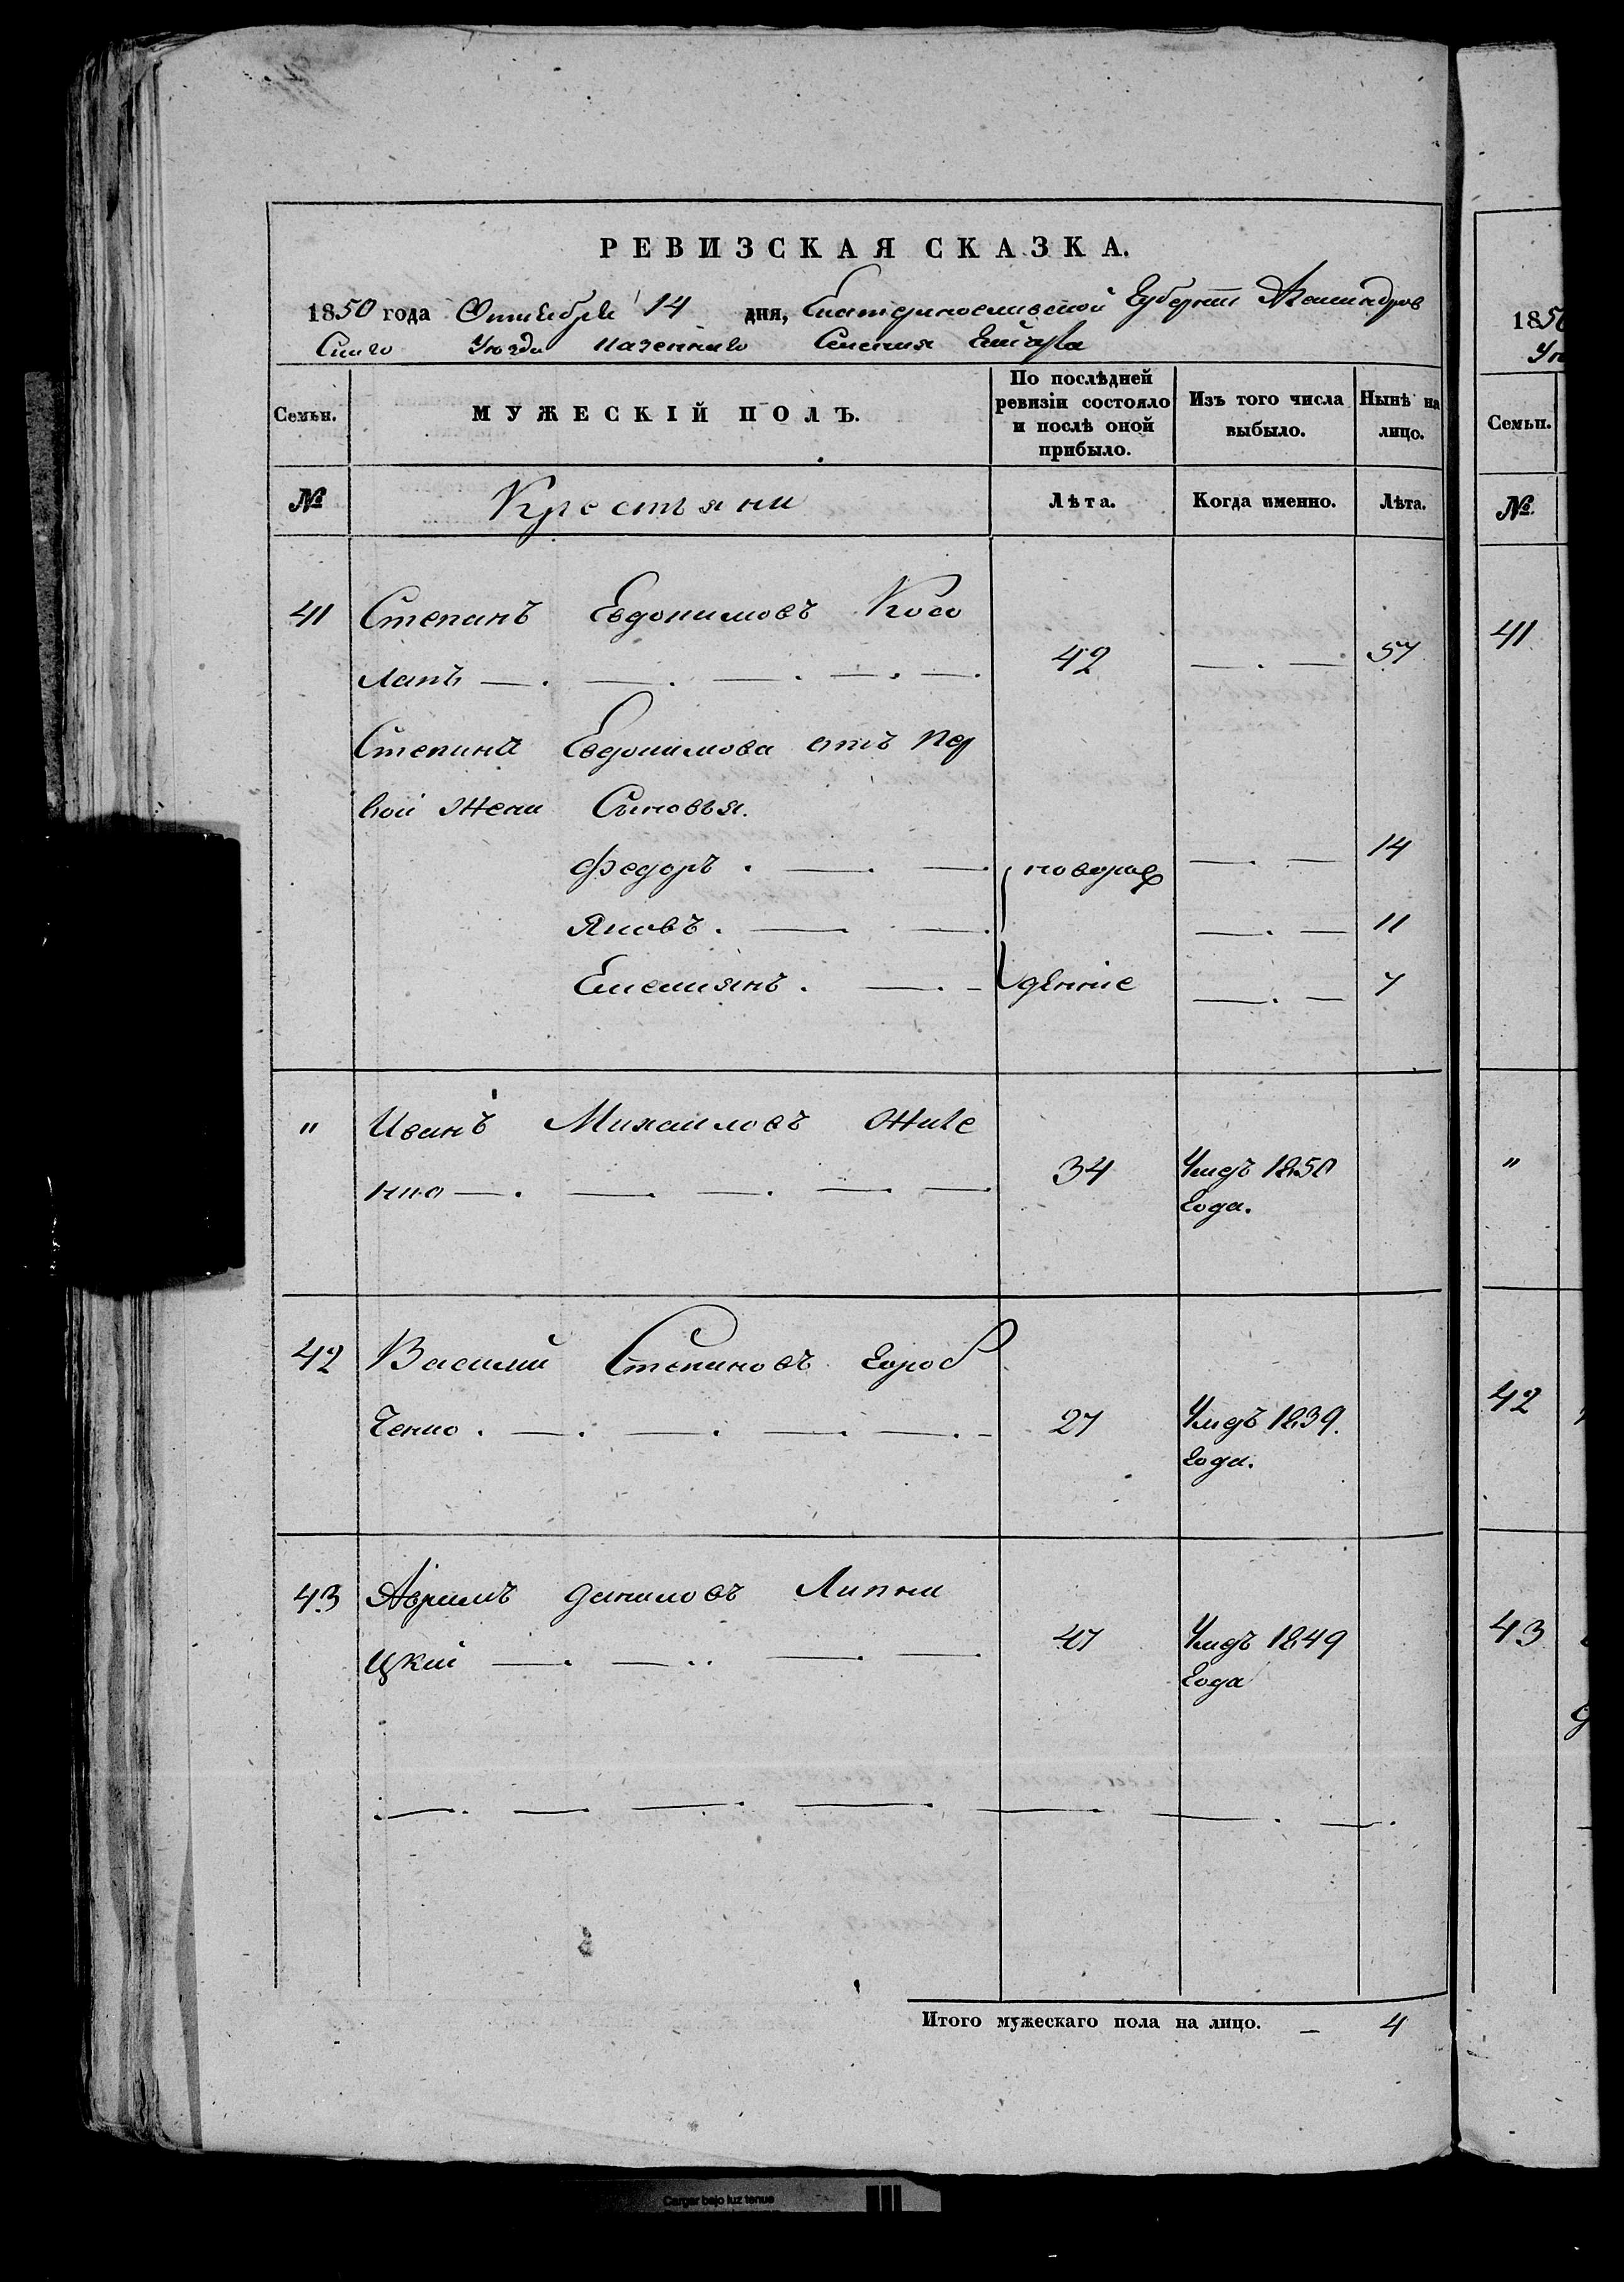 РЕВИЗСКАЯ СКАЗКА.
1850 года Октября 14 дня, Екатеринославской Губернiи Александров
скаго Уѣзда казеннаго Селения
Семьи.
МУЖЕСКIЙ ПОЛЪ.
По послѣдней
ревизiи состояло
и послѣ оной
прибыло.
Изъ того числа
выбыло.
Нынѣ на
лицо.
№
Крестьяни
Лѣта.
Когда именно.
Лѣта.
41 Степанъ Евдокимовъ Косо
лапъ 42 57
Степана Евдокимова отъ пер
вой жени Сыновья.
Федоръ новорож 14
Яковъ 11
Емельянъ денніе 7
" Иванъ Михайловъ
нко 34 Умръ 1850
года.
42 Василий Степановъ Горб
ченко 27 Умръ 1839
года.
43 Абрамъ Даниловъ Липни
цкий 47 Умръ 1849
года
Итого мужескаго пола на лицо. 4
1850
Семьи.
№
41
"
42
43
Cargar bajo luz tenue